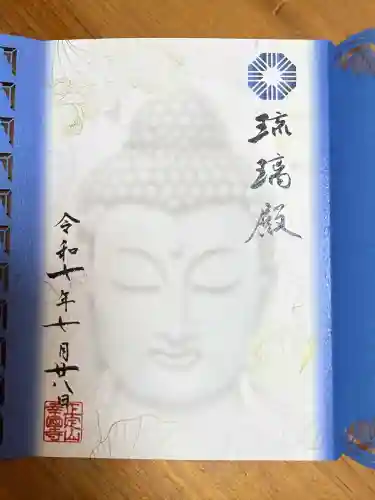 琉璃殿
令和七年七月廿八日
正定山
幸國寺